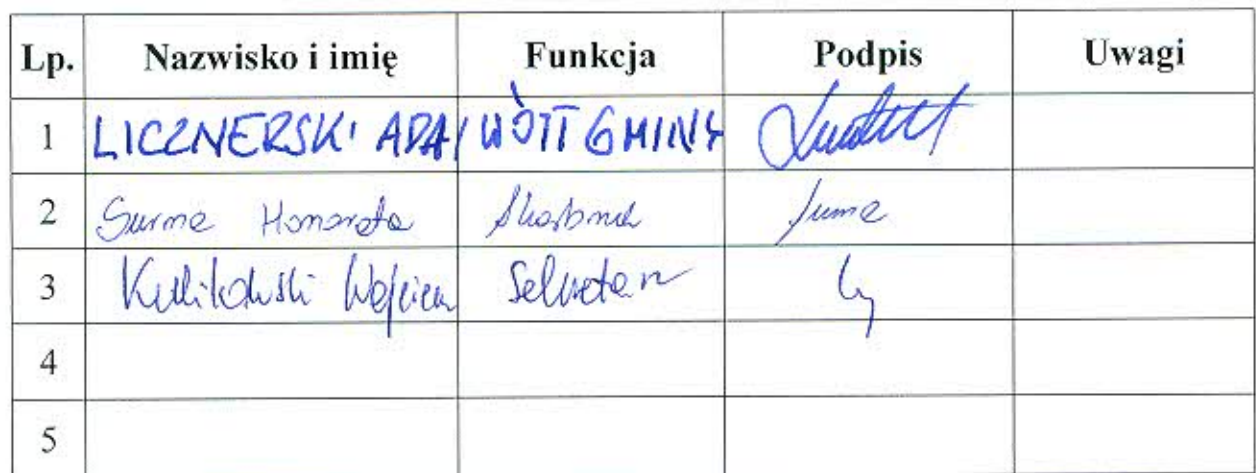 Lp. Nazwisko i imię Funkcja Podpis Uwagi
1 LICZNERSKI ADA WÓJT GMINY
2 Surma Honorata Skarbnik
3 Kulikowski Wojciech Sekretarz
4
5